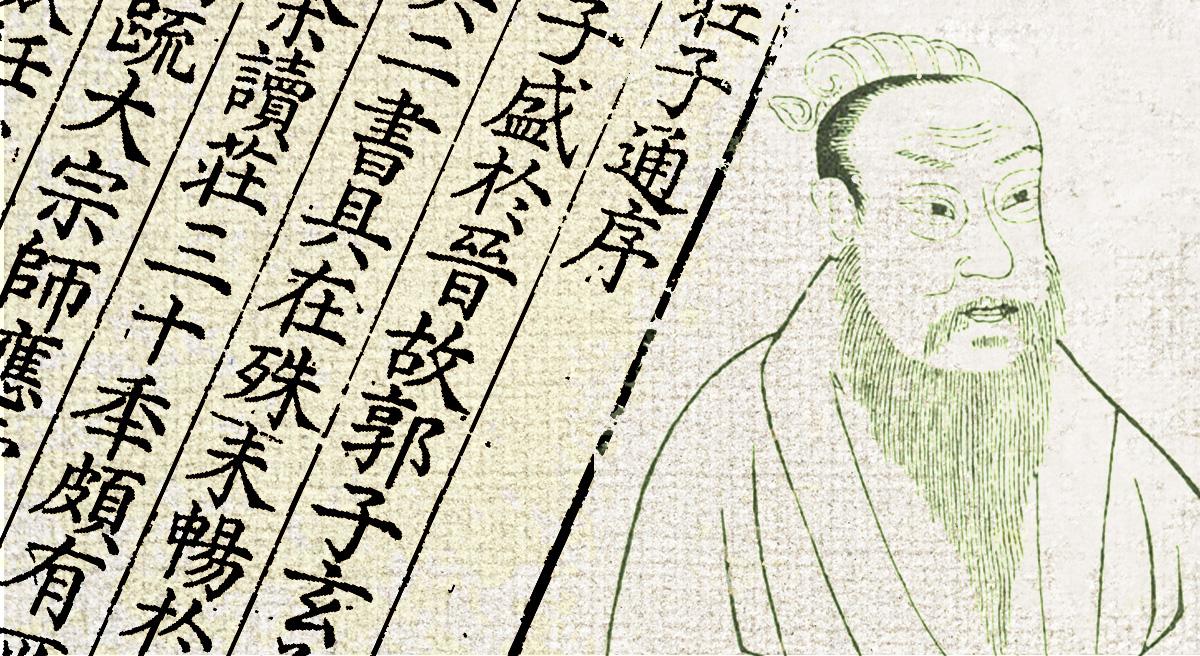 莊子通序
子盛於晉故郭子玄
二書具在殊未暢於
余讀莊三十秊頗有
疏大宗師應
任